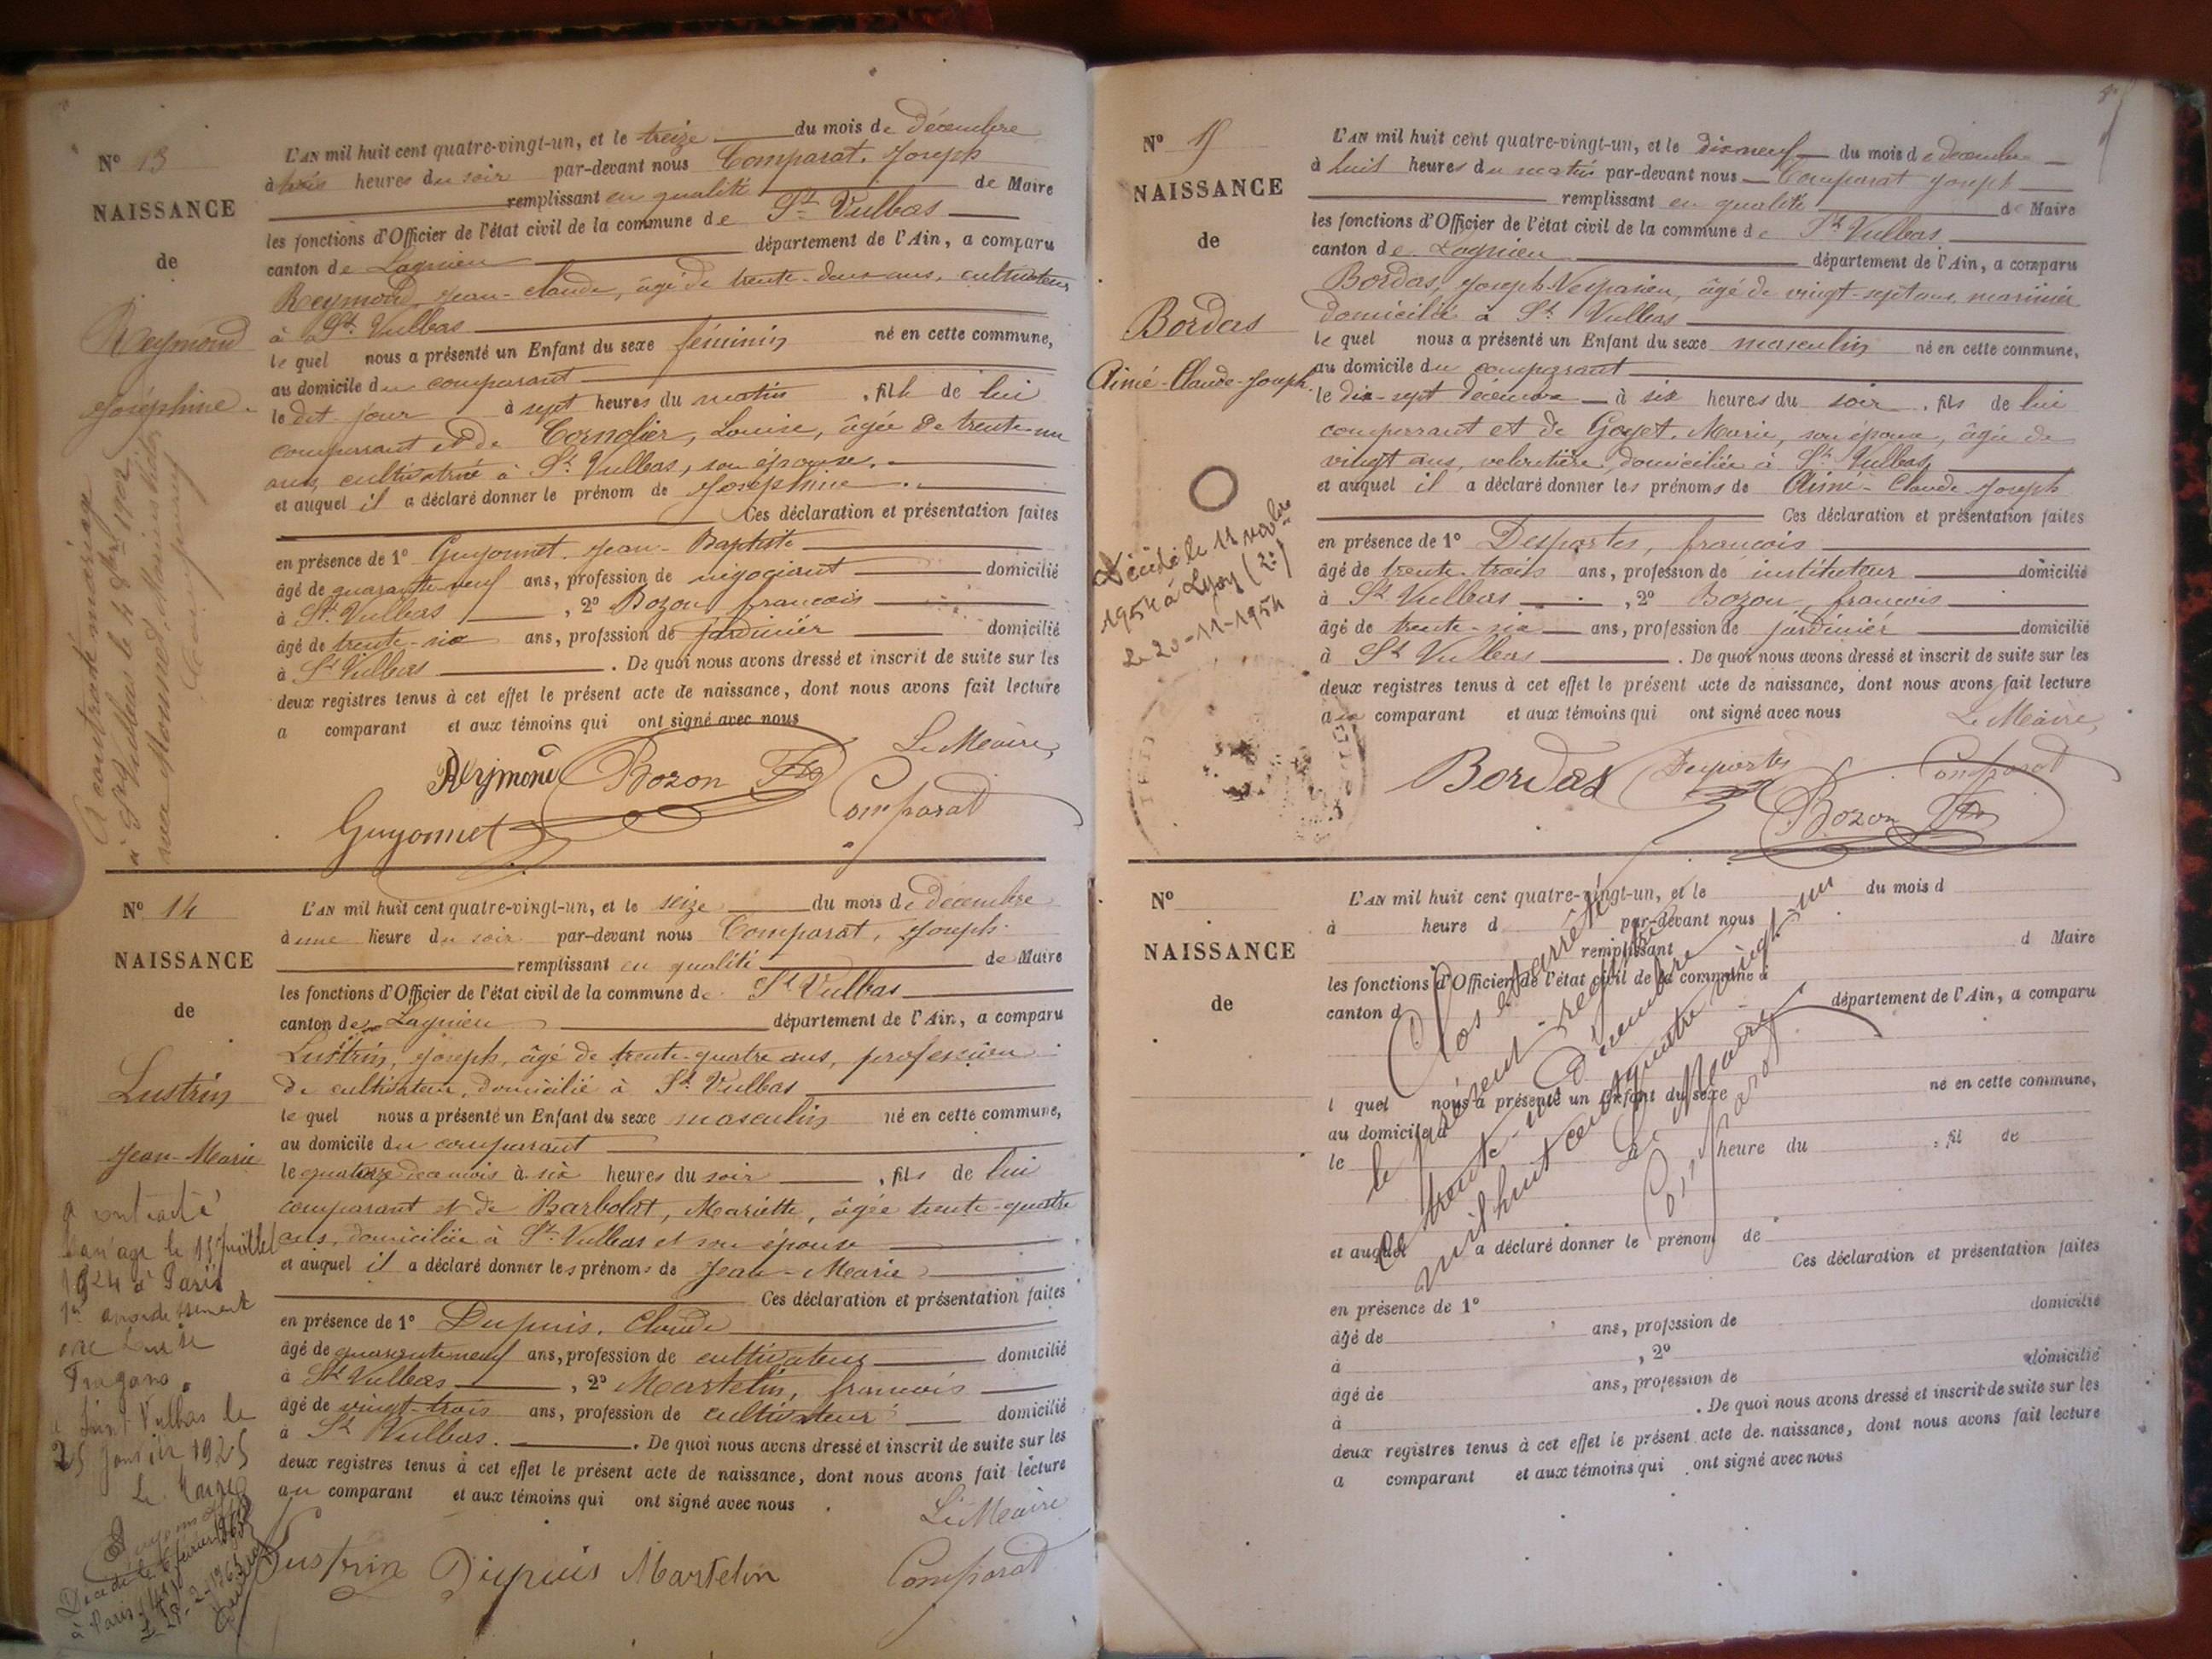 N° 13
NAISSANCE
de
Reymond
Joséphine.
A contracté mariage
à St Vulbas le 4 8bre 1902
avec Monnet, Marius
L'AN mil huit cent quatre-vingt-un, et le treize du mois de décembre
à trois heures du soir par-devant nous Comparat, Joseph
remplissant en qualité de Maire
les fonctions d'Officier de l'état civil de la commune de St Vulbas
canton de Lagnieu département de l'Ain, a comparu
Reymond, Jean-Claude, âgé de trente-deux ans, cultivateur
à St Vulbas
lequel nous a présenté un Enfant du sexe féminin né en cette commune,
au domicile du comparant
le dit jour à sept heures du matin, fille de lui
comparant et de Cornolier, Louise, âgée de trente-un
ans, cultivatrice à St Vulbas, son épouse.
et auquel il a déclaré donner le prénom de Joséphine.
Ces déclaration et présentation faites
en présence de 1° Guyonnet, Jean-Baptiste
âgé de quarante-neuf ans, profession de négociant domicilié
à St Vulbas, 2° Bozon, françois
âgé de trente-six ans, profession de jardinier domicilié
à St Vulbas. De quoi nous avons dressé et inscrit de suite sur les
deux registres tenus à cet effet le présent acte de naissance, dont nous avons fait lecture
a comparant et aux témoins qui ont signé avec nous
Le Maire,
Reymond Bozon Fs
Guyonnet Comparat
N° 14
NAISSANCE
de
Lustrin
Jean-Marie
a contracté
mariage le 15 Juillet
1924 à Paris
1er arrondissement
avec Louise
Fragano.
à Saint Vulbas le
25 Janvier 1925
Le Maire
Décédé le 6 février 1963
à Paris 14e
Le 28-2-1963
L'AN mil huit cent quatre-vingt-un, et le seize du mois de décembre
à une heure du soir par-devant nous Comparat, Joseph.
remplissant en qualité de Maire
les fonctions d'Officier de l'état civil de la commune de St Vulbas
canton de Lagnieu département de l'Ain, a comparu
Lustrin, Joseph, âgé de trente-quatre ans, profession
de cultivateur, domicilié à St Vulbas
lequel nous a présenté un Enfant du sexe masculin né en cette commune,
au domicile du comparant
le quatorze du mois à six heures du soir, fils de lui
comparant et de Barbolat, Mariette, âgée trente-quatre
ans, domiciliée à St Vulbas et son épouse
et auquel il a déclaré donner les prénoms de Jean-Marie
Ces déclaration et présentation faites
en présence de 1° Dupuis, Claude
âgé de quarante neuf ans, profession de cultivateur domicilié
à St Vulbas, 2° Martelin, françois
âgé de vingt-trois ans, profession de cultivateur domicilié
à St Vulbas. De quoi nous avons dressé et inscrit de suite sur les
deux registres tenus à cet effet le présent acte de naissance, dont nous avons fait lecture
au comparant et aux témoins qui ont signé avec nous.
Le Maire
Lustrin Dupuis Martelin Comparat
N° 15
NAISSANCE
de
Bordas
Aimé-Claude-Joseph.
Décédé le 11 novbre
1954 à Lyon (2e)
Le 20-11-1954
L'AN mil huit cent quatre-vingt-un, et le dix neuf du mois de décembre
à huit heures du matin par-devant nous Comparat Joseph
remplissant en qualité de Maire
les fonctions d'Officier de l'état civil de la commune de St Vulbas
canton de Lagnieu département de l'Ain, a comparu
Bordas, Joseph Vespasien, âgé de vingt-sept ans, marinier
domicilié à St Vulbas
lequel nous a présenté un Enfant du sexe masculin né en cette commune,
au domicile du comparant
le dix-sept décembre à six heures du soir, fils de lui
comparant et de Goyet, Marie, son épouse, âgée de
vingt ans, veloutière, domiciliée à St Vulbas
et auquel il a déclaré donner les prénoms de Aimé-Claude Joseph
Ces déclaration et présentation faites
en présence de 1° Desportes, francois
âgé de trente-trois ans, profession de instituteur domicilié
à St Vulbas, 2° Bozon, francois
âgé de trente-six ans, profession de jardinier domicilié
à St Vulbas. De quoi nous avons dressé et inscrit de suite sur les
deux registres tenus à cet effet le présent acte de naissance, dont nous avons fait lecture
au comparant et aux témoins qui ont signé avec nous
Le Maire,
Bordas Desportes Comparat
Bozon Fs
N°
NAISSANCE
de
L'AN mil huit cent quatre-vingt-un, et le du mois d
à heure d par-devant nous
remplissant d Maire
les fonctions d'Officier de l'état civil de la commune d
canton d département de l'Ain, a comparu
l quel nous a présenté un Enfant du sexe né en cette commune,
au domicile d
le heure du, fil de
et auquel a déclaré donner le prénom de
Ces déclaration et présentation faites
en présence de 1°
âgé de ans, profession de domicilié
à , 2°
âgé de ans, profession de domicilié
à . De quoi nous avons dressé et inscrit de suite sur les
deux registres tenus à cet effet le présent acte de naissance, dont nous avons fait lecture
a comparant et aux témoins qui ont signé avec nous
Clos et arrêté
le présent registre
ce trente-un Décembre
mil huit cent quatre vingt-un
Le Maire
Comparat